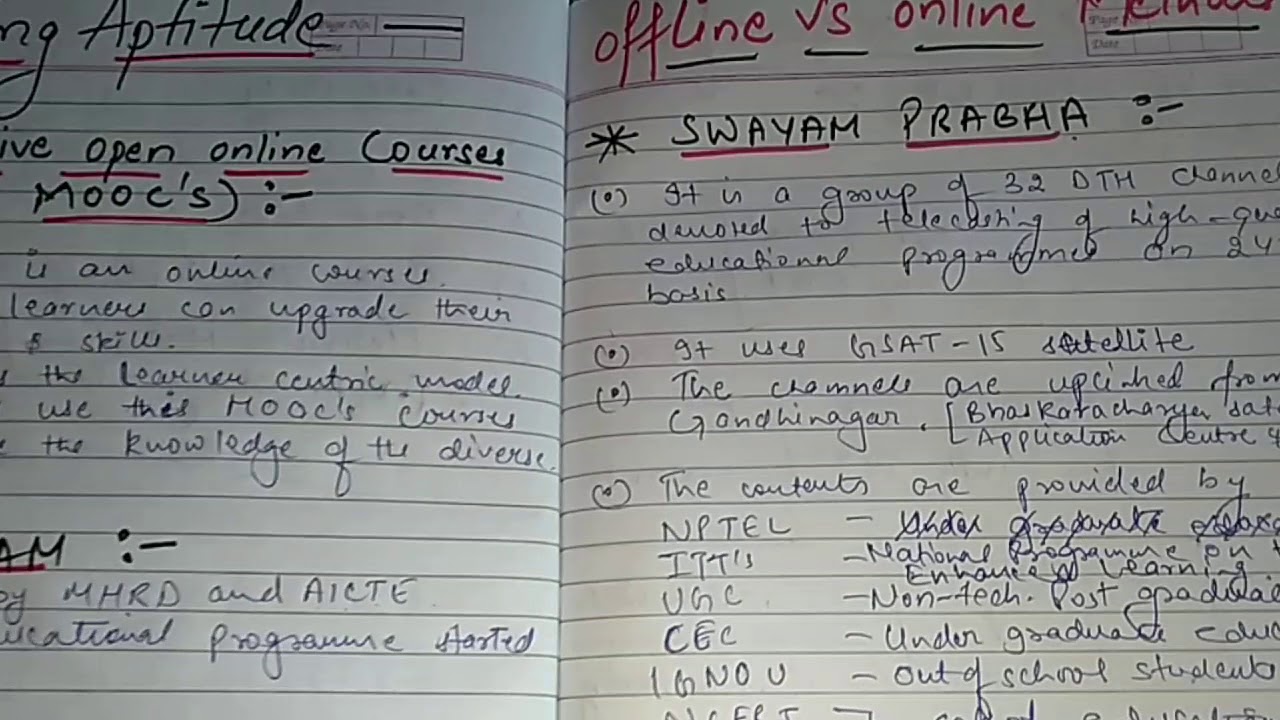 ng Aptitude
Page No.
ive open online Courses
MOOC's) :-
is an online courses.
learners can upgrade their
& skills.
the learner centric model.
use this MOOC's Courses
the knowledge of the diverse.
AM :-
by MHRD and AICTE
ucational Programme started
offline vs online
Page
Date
* SWAYAM PRABHA :-
(0) It is a group of 32 DTH Channel
devoted to telecasting of high-qua
educational programmes on 24
basis
(0) It uses GSAT-15 satellite
(0) The channels are uplinked from
Gandhinagar. [Bhaskaracharya sat
Application Centre &
(0) The contents are provided by
NPTEL - Under graduate
IIT's - National Programme on
Enhanced Learning
UGC - Non-tech. Post graduat
CEC - Under graduate educ
IGNOU - Out of school students
NCERT